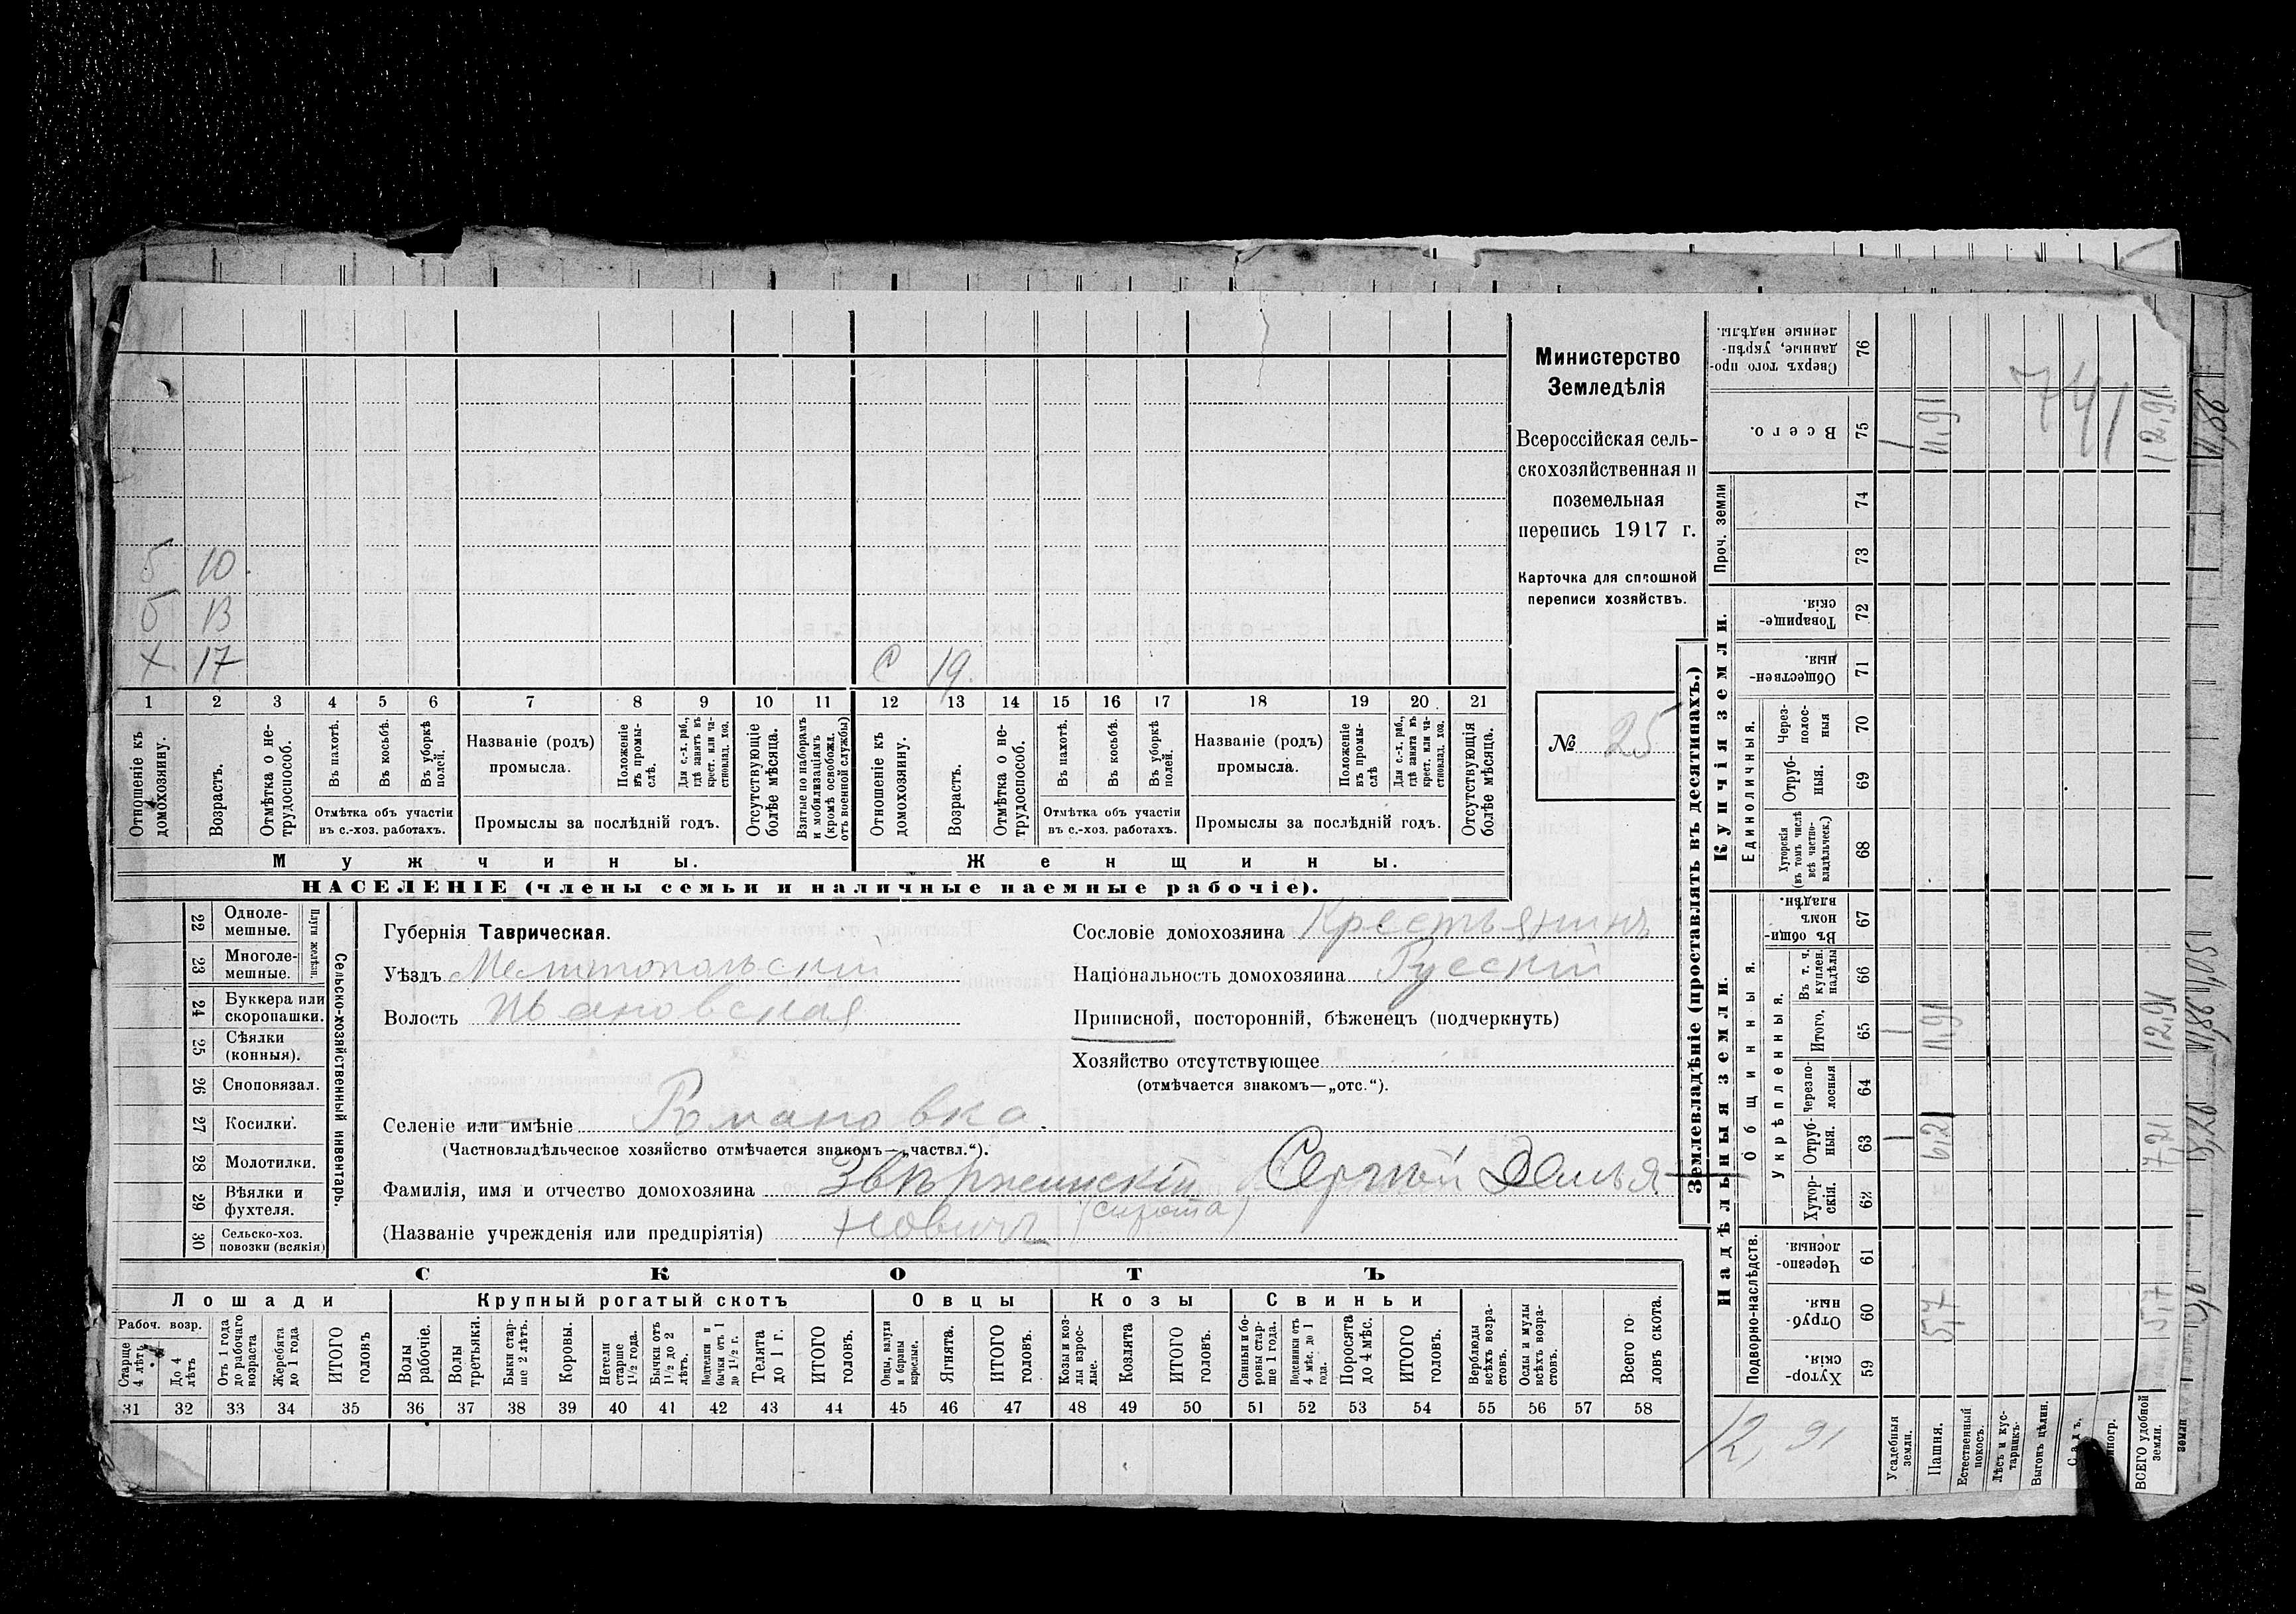 б 10.
б 13
х. 17 с 19.
1 2 3 4 5 6 7 8 9 10 11 12 13 14 15 16 17 18 19 20 21
Отношеніе къ домохозяину.
Возрастъ.
Отмѣтка о нетрудоспособ.
Въ пахотѣ.
Въ косьбѣ.
Въ уборкѣ полей.
Отмѣтка объ участіи
въ с.-хоз. работахъ.
Названіе (родъ)
промысла.
Положеніе въ промыслѣ.
Для с.-х. раб., гдѣ занятъ въ крест. или частновлад. хоз.
Промыслы за послѣдній годъ.
Отсутствующіе болѣе мѣсяца.
Взятые по наборамъ и мобилизаціямъ (кромѣ освобожд. отъ военной службы)
Отношеніе къ домохозяину.
Возрастъ.
Отмѣтка о нетрудоспособ.
Въ пахотѣ.
Въ косьбѣ.
Въ уборкѣ полей.
Отмѣтка объ участіи
въ с.-хоз. работахъ.
Названіе (родъ)
промысла.
Положеніе въ промыслѣ
Для с.-х. раб., гдѣ занята въ крест. или частновлад. хоз.
Промыслы за послѣдній годъ.
Отсутствующія болѣе мѣсяца.
Мужчины. Женщины.
НАСЕЛЕНІЕ (члены семьи и наличные наемные рабочіе).
Министерство
Земледѣлія
Всероссійская сель-
скохозяйственная и
поземельная
перепись 1917 г.
Карточка для сплошной
переписи хозяйствъ.
№ 25
22 Одноле-
мешные.
23 Многоле-
мешные.
Плуги желѣзн.
24 Буккера или
скоропашки.
25 Сѣялки
(конныя).
26 Сноповязал.
27 Косилки.
28 Молотилки.
29 Вѣялки и
фухтеля.
30 Сельско-хоз.
повозки (всякія)
Сельско-хозяйственный инвентарь.
Губернія Таврическая.
Уѣздъ Мелитопольскій
Волость Ивановская
Селеніе или имѣніе Романовка.
(Частновладѣльческое хозяйство отмѣчается знакомъ—„частвл.“).
Фамилія, имя и отчество домохозяина Сергѣй Демья-
(Названіе учрежденія или предпріятія) новичъ (сирота)
Сословіе домохозяина Крестьянинъ
Національность домохозяина Русскій
Приписной, посторонній, бѣженецъ (подчеркнуть)
Хозяйство отсутствующее
(отмѣчается знакомъ—„отс.“).
СКОТЪ
Лошади Крупный рогатый скотъ Овцы Козы Свиньи
Рабоч. возр.
Старше 4 лѣтъ
До 4 лѣтъ
Отъ 1 года до рабочаго возраста
Жеребята до 1 года
ИТОГО головъ
Волы рабочіе.
Волы третьяки.
Быки старше 2 лѣтъ.
Коровы.
Нетели старше 1½ года.
Бычки отъ 1½ до 2 лѣтъ.
Подтелки и бычки отъ 1 до 1½ г.
Телята до 1 г.
ИТОГО головъ.
Овцы, валухи и бараны взрослые.
Ягнята.
ИТОГО головъ.
Козы и козлы взрослые.
Козлята
ИТОГО головъ.
Свиньи и боровы старше 1 года.
Подсвинки отъ 4 мѣс. до 1 года.
Поросята до 4 мѣс.
ИТОГО головъ.
Верблюды всѣхъ возрастовъ.
Ослы и мулы всѣхъ возрастовъ.
Всего головъ скота.
31 32 33 34 35 36 37 38 39 40 41 42 43 44 45 46 47 48 49 50 51 52 53 54 55 56 57 58
Землевладѣніе (проставлять въ десятинахъ.)
Надѣльныя земли. Купчія земли.
Подворно-наслѣдств.
Общинныя.
Укрѣпленныя.
Единоличныя.
Проч. земли
Хуторскія. 59
Отрубныя. 60
Черезполосныя. 61
Хуторскія. 62
Отрубныя. 63
Черезполосныя 64
Итого. 65
Въ т. ч. куплен. надѣлы 66
Въ общиномъ владѣн. 67
Хуторскія (въ томъ числѣ всѣ частновладѣльческ.) 68
Отрубныя. 69
Черезполосныя 70
Общественныя. 71
Товарищескія. 72
73
74
Всего. 75
Сверхъ того проданные, укрѣпленные надѣлы. 76
Усадебныя земли. 1 1 1
Пашня. 5,7 6,21 11,91 11,91
Естественный покосъ.
Лѣсъ и кустарникъ.
Выгонъ цѣлин.
Садъ.
ВСЕГО удобной земли. 5,7 7,21 12,91 12,91
12,91
741